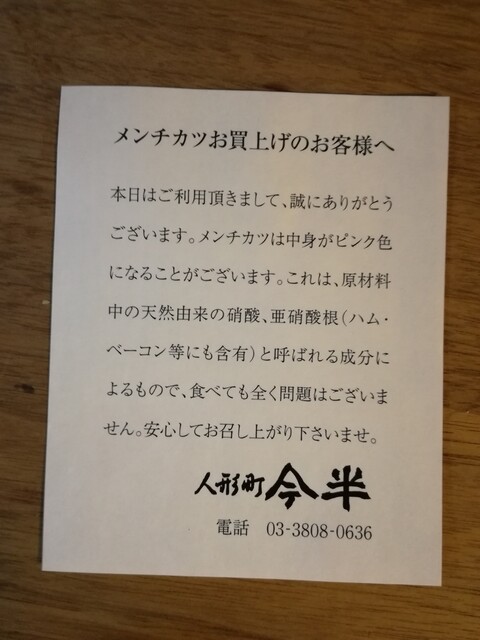 メンチカツお買上げのお客様へ
本日はご利用頂きまして、誠にありがとう
ございます。メンチカツは中身がピンク色
になることがございます。これは、原材料
中の天然由来の硝酸、亜硝酸根（ハム・
ベーコン等にも含有）と呼ばれる成分に
よるもので、食べても全く問題はございま
せん。安心してお召し上がり下さいませ。
人形町今半
電話 03-3808-0636